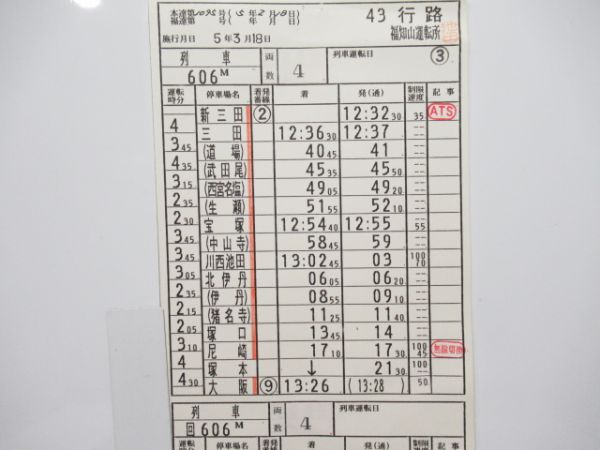 本達第1095号(5年2月18日)
福達第 号( 年 月 日)
43 行路
福知山運転所
施行月日 5年3月18日
③
列車 両数 列車運転日
606M 4
運転時分 停車場名 着発番線 着 発(通) 制限速度 記事
新三田 ② 12:32 30 35 ATS
4
三田 12:36 30 12:37 --
3 45
(道場) 40 45 41 --
4 35
(武田尾) 45 35 45 50 --
3 15
(西宮名塩) 49 05 49 20 --
2 35
(生瀬) 51 55 52 10 --
2 30
宝塚 12:54 40 12:55 -- 55
3 45
(中山寺) 58 45 59 --
3 45
川西池田 13:02 45 03 100 70
3 05
北伊丹 06 05 06 20 --
2 35
(伊丹) 08 55 09 10 --
2 15
(猪名寺) 11 25 11 40 --
2 05
塚口 13 45 14 --
3 10
尼崎 17 10 17 30 100 45 無線切換
4
塚本 ↓ 21 30 100 --
4 30
大阪 ⑨ 13:26 (13:28) 50
列車 両数 列車運転日
回606M 4
運転 停車場名 着発 着 発(通) 制限 記事